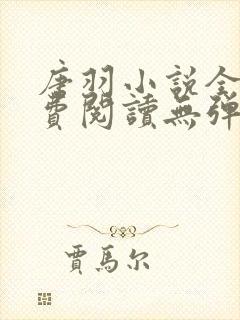 唐羽小说全
费閱讀無彈
賈馬尔